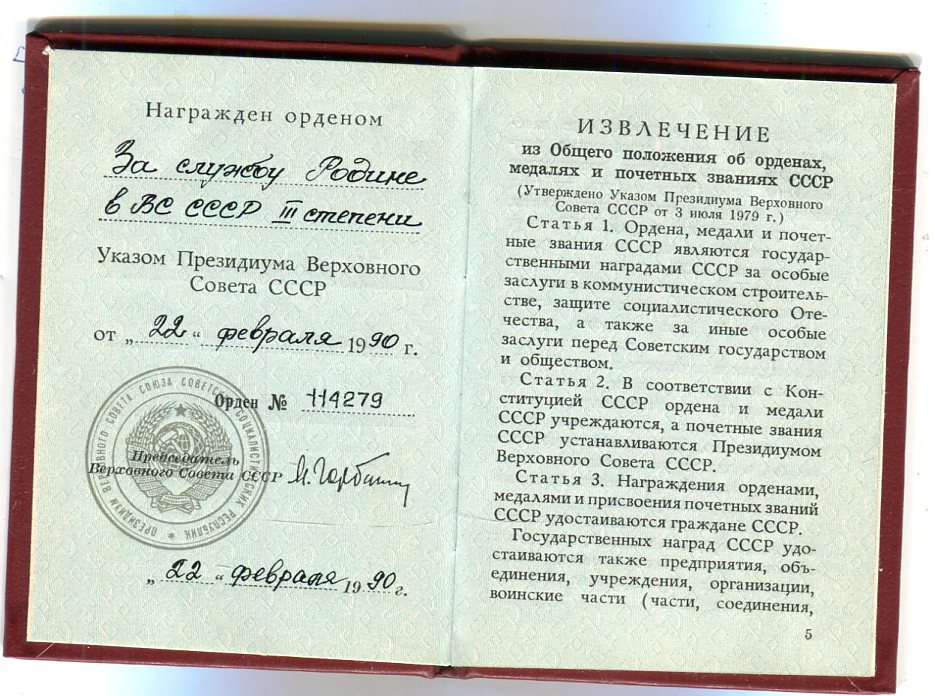 Награжден орденом
За службу Родине
в ВС СССР III степени
Указом Президиума Верховного
Совета СССР
от „22“ февраля 1990 г.
Орден № 114279
ПРЕЗИДИУМ ВЕРХОВНОГО СОВЕТА СОЮЗА СОВЕТСКИХ СОЦИАЛИСТИЧЕСКИХ РЕСПУБЛИК
Председатель
Верховного Совета СССР М. Горбачев
„22“ февраля 1990 г.
ИЗВЛЕЧЕНИЕ
из Общего положения об орденах,
медалях и почетных званиях СССР
(Утверждено Указом Президиума Верховного
Совета СССР от 3 июля 1979 г.)
Статья 1. Ордена, медали и почет-
ные звания СССР являются государ-
ственными наградами СССР за особые
заслуги в коммунистическом строитель-
стве, защите социалистического Оте-
чества, а также за иные особые
заслуги перед Советским государством
и обществом.
Статья 2. В соответствии с Кон-
ституцией СССР ордена и медали
СССР учреждаются, а почетные звания
СССР устанавливаются Президиумом
Верховного Совета СССР.
Статья 3. Награждения орденами,
медалями и присвоения почетных званий
СССР удостаиваются граждане СССР.
Государственных наград СССР удо-
стаиваются также предприятия, объ-
единения, учреждения, организации,
воинские части (части, соединения,
5